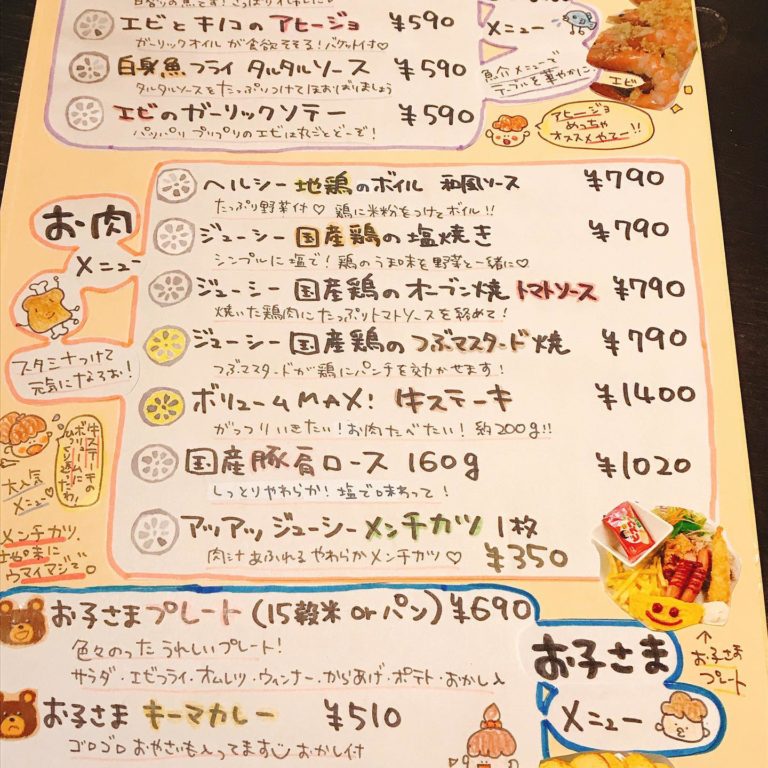 エビとキノコのアヒージョ ¥590
ガーリックオイルが食欲そそる!バケット付♡
白身魚フライ タルタルソース ¥590
タルタルソースをたっぷりつけてほおばりましょう
エビのガーリックソテー ¥590
パリパリ プリップリのエビは丸ごとどーぞ!
メニュー
魚介メニューで
テーブルを華やかに
エビ
アヒージョ
めっちゃ
オススメやでー!!
お肉
メニュー
スタミナつけて
元気になるお!
ヘルシー地鶏のボイル 和風ソース ¥790
たっぷり野菜付♡ 鶏に米粉をつけてボイル!!
ジューシー国産鶏の塩焼き ¥790
シンプルに塩で!鶏のうま味を野菜と一緒に♡
ジューシー国産鶏のオーブン焼 トマトソース ¥790
焼いた鶏肉にたっぷりトマトソースを絡めて!
ジューシー国産鶏のつぶマスタード焼 ¥790
つぶマスタードが鶏にパンチを効かせます!
ボリュームMAX! 牛ステーキ ¥1400
がっつりいきたい!お肉たべたい!約200g!!
国産豚肩ロース 160g ¥1020
しっとりやわらか!塩で味わって!
アッアッジューシーメンチカツ 1枚
¥350
肉汁あふれる やわらかメンチカツ♡
牛ステーキの
ボリュームに
大人気
メニュー
メンチカツ、
地味に
ウマイマジで。
お子さまプレート(15穀米orパン) ¥690
色々のった うれしいプレート!
サラダ・エビフライ・オムレツ・ウィンナー・からあげ・ポテト・おかし
お子さま キーマカレー ¥510
ゴロゴロ おやさいも入ってます おかし付
お子さま
メニュー
↑
お子さま
プレート